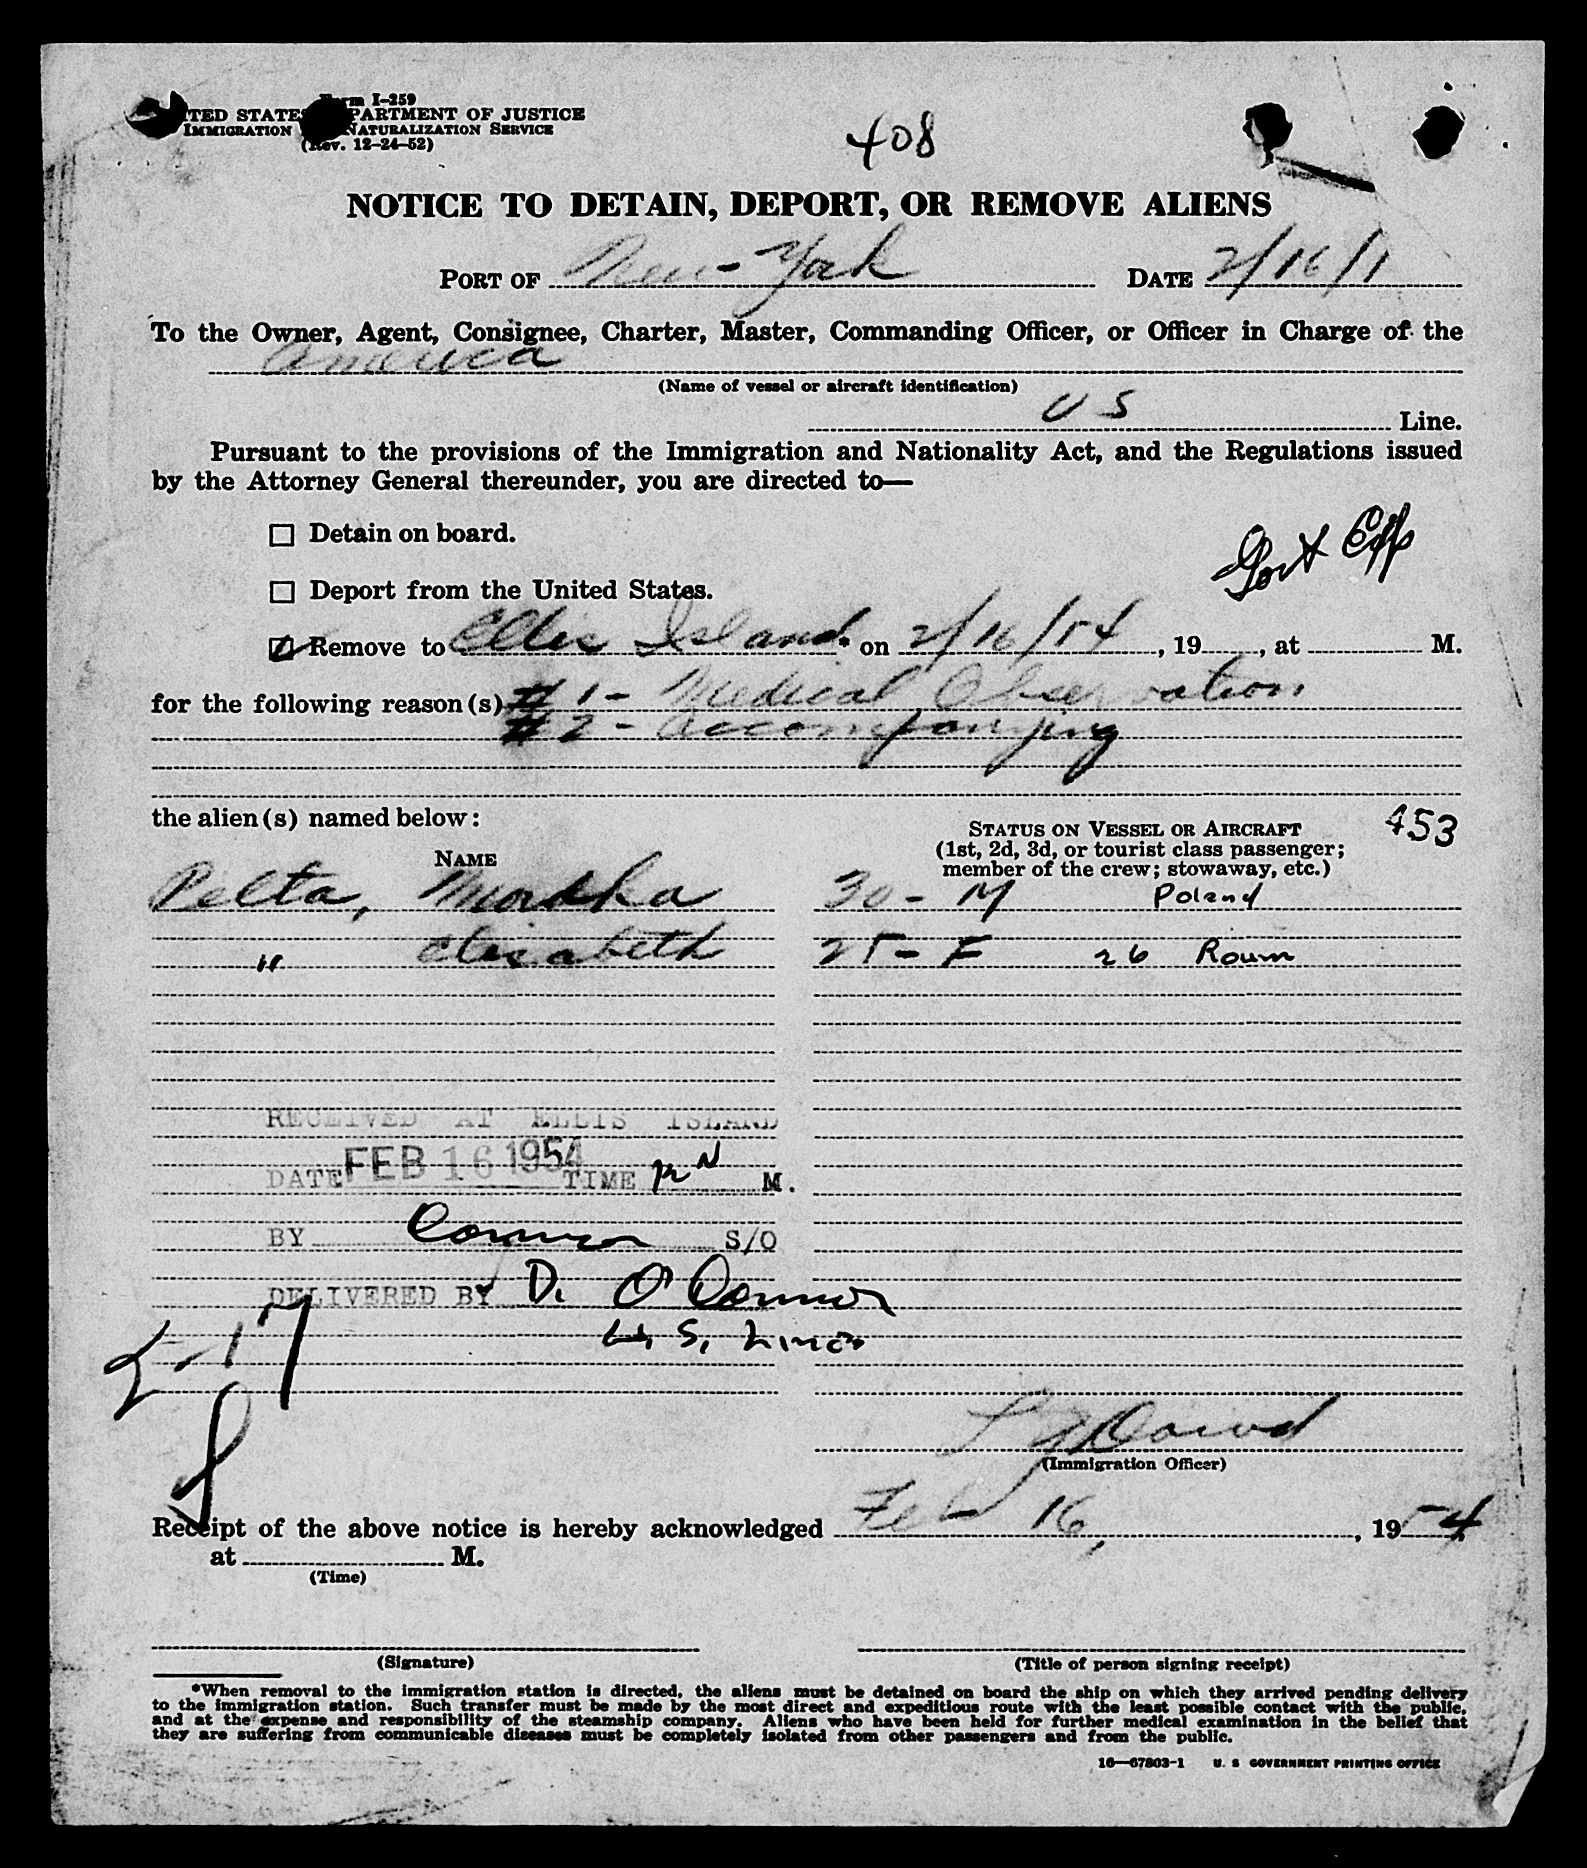 Form I-259
UNITED STATES DEPARTMENT OF JUSTICE
IMMIGRATION NATURALIZATION SERVICE
(Rev. 12-24-52)
408
NOTICE TO DETAIN, DEPORT, OR REMOVE ALIENS
PORT OF New-York DATE 2/16/1
To the Owner, Agent, Consignee, Charter, Master, Commanding Officer, or Officer in Charge of the
America
(Name of vessel or aircraft identification)
US Line.
Pursuant to the provisions of the Immigration and Nationality Act, and the Regulations issued
by the Attorney General thereunder, you are directed to—
☐ Detain on board.
Govt
☐ Deport from the United States.
☑ Remove to Ellis Island * on 2/16/54, 19, at M.
for the following reason(s) #1- Medical Observation
#2- Accompanying
the alien(s) named below:
STATUS ON VESSEL OR AIRCRAFT
(1st, 2d, 3d, or tourist class passenger;
member of the crew; stowaway, etc.)
453
NAME
Pelta, Mordka 30 - M Poland
" Elisabeth 25 - F 26 Roum
RECEIVED AT ELLIS ISLAND
DATE FEB 16 1954 TIME M.
BY Connor S/O
DELIVERED BY D. O'Connor
U.S. Lines
2-17
(Immigration Officer)
Receipt of the above notice is hereby acknowledged Feb 16, , 1954
at M.
(Time)
(Signature) (Title of person signing receipt)
*When removal to the immigration station is directed, the aliens must be detained on board the ship on which they arrived pending delivery
to the immigration station. Such transfer must be made by the most direct and expeditious route with the least possible contact with the public,
and at the expense and responsibility of the steamship company. Aliens who have been held for further medical examination in the belief that
they are suffering from communicable diseases must be completely isolated from other passengers and from the public.
16—67803-1 U. S. GOVERNMENT PRINTING OFFICE